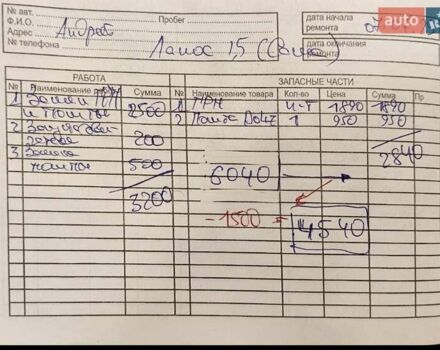 № авт.
Ф.И.О. Андрей Пробег
Адрес
№ телефона Ланос 1,5 (
дата начала ремонта 07
дата окончания ремонта
auto
РАБОТА ЗАПАСНЫЕ ЧАСТИ
№ Наименование Сумма № Наименование товара Кол-во Цена Сумма Пр
1 Замена ГРМ 1 ГРМ к-т 1890 1890
и помпы 2500 2 Помпа Dolz 1 950 950
2
200 2840
3 Замена
500 6040
3200
- 1500 = 4540